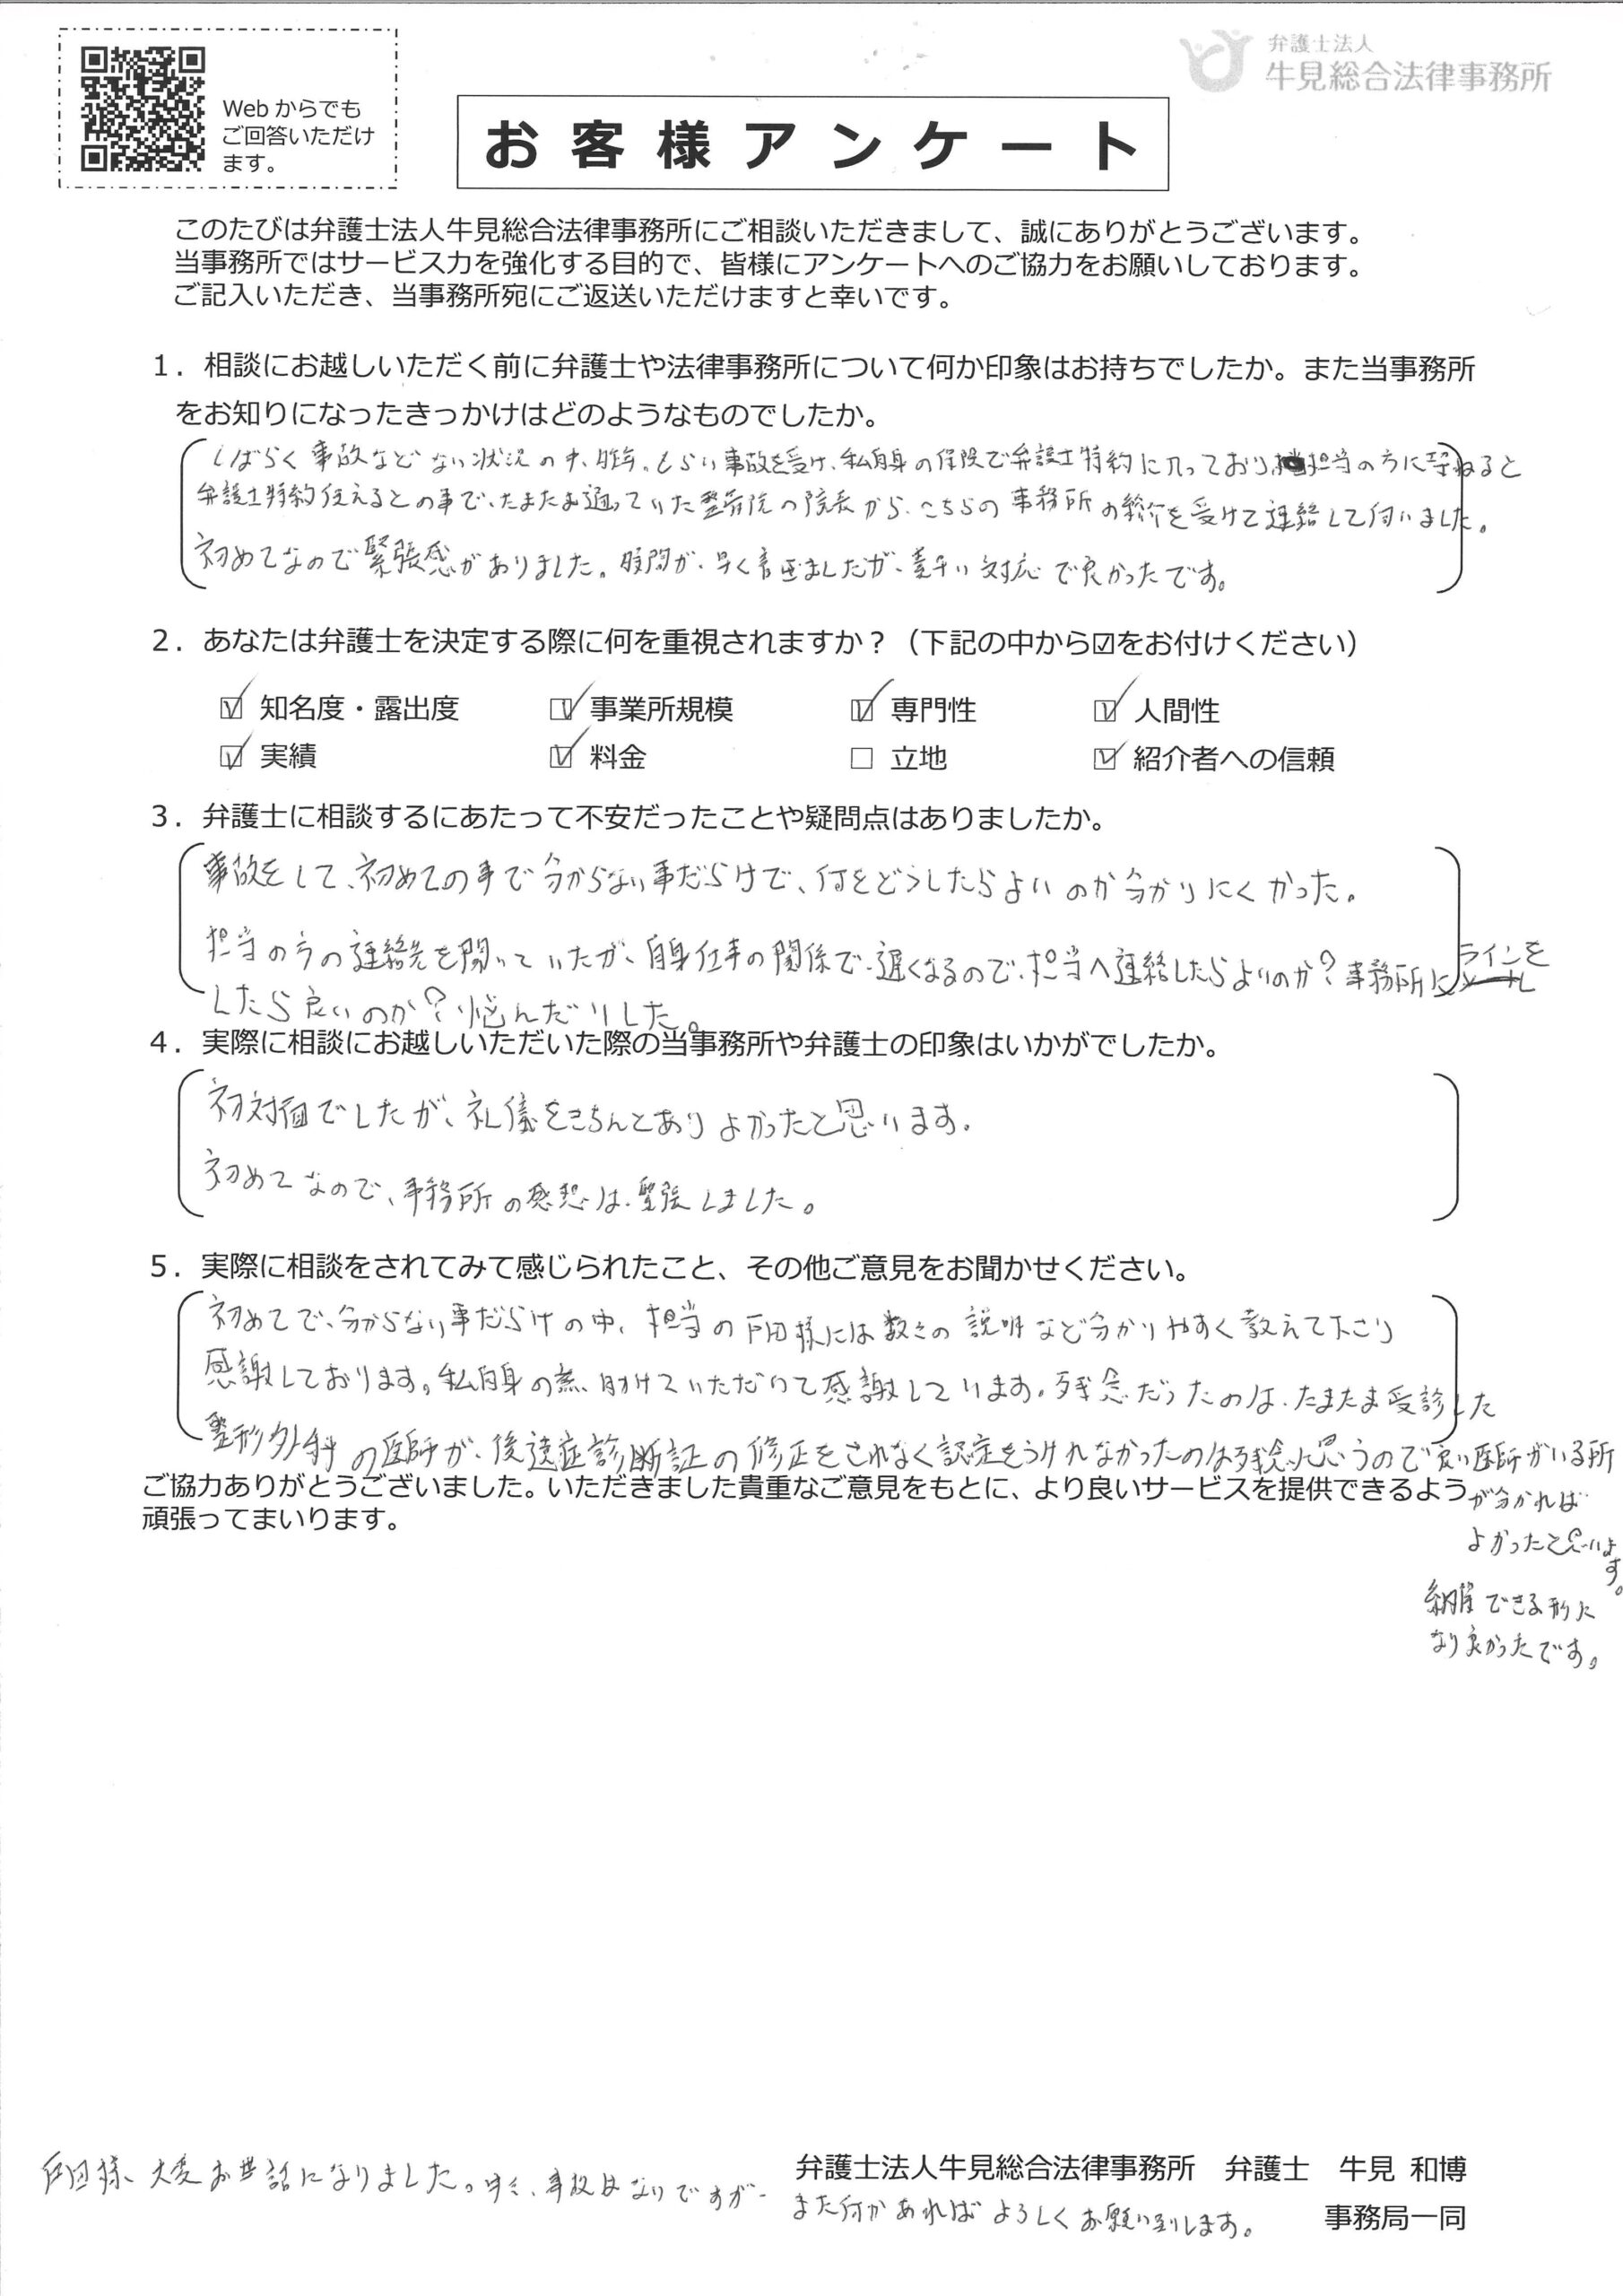 Webからでも
ご回答いただけ
ます。
弁護士法人
牛見総合法律事務所
お客様アンケート
このたびは弁護士法人牛見総合法律事務所にご相談いただきまして、誠にありがとうございます。
当事務所ではサービス力を強化する目的で、皆様にアンケートへのご協力をお願いしております。
ご記入いただき、当事務所宛にご返送いただけますと幸いです。
1．相談にお越しいただく前に弁護士や法律事務所について何か印象はお持ちでしたか。また当事務所
をお知りになったきっかけはどのようなものでしたか。
しばらく事故などない状況の中、昨年。もらい事故を受け、私自身の保険で弁護士特約に入っており、担当の方に尋ねると
弁護士特約使えるとの事で、たまたま通っていた整骨院の院長から、こちらの事務所の紹介を受けて連絡して伺いました。
初めてなので緊張感がありました。時間が、早く着きましたが、素早い対応で良かったです。
2．あなたは弁護士を決定する際に何を重視されますか？（下記の中から☑をお付けください）
☑ 知名度・露出度 ☑ 事業所規模 ☑ 専門性 ☑ 人間性
☑ 実績 ☑ 料金 □ 立地 ☑ 紹介者への信頼
3．弁護士に相談するにあたって不安だったことや疑問点はありましたか。
事故をして、初めての事で分からない事だらけで、何をどうしたらよいのか分かりにくかった。
担当の方の連絡先を聞いていたが、自身仕事の関係で遅くなるので、担当へ連絡したらよいのか？事務所にラインを
したら良いのか？悩んだりした。
4．実際に相談にお越しいただいた際の当事務所や弁護士の印象はいかがでしたか。
初対面でしたが、礼儀をきちんとありよかったと思います。
初めてなので、事務所の感想は、緊張しました。
5．実際に相談をされてみて感じられたこと、その他ご意見をお聞かせください。
初めてで、分からない事だらけの中、担当の戸田様には数々の説明など分かりやすく教えて下さり
感謝しております。私自身の為、助けていただいて感謝しています。残念だったのは、たまたま受診した
整形外科の医師が、後遺症診断証の修正をされなく認定をうけれなかったのは残念に思うので良い医師がいる所
が分かれば
よかったと思いま
す。
納得できる形に
なり良かったです。
ご協力ありがとうございました。いただきました貴重なご意見をもとに、より良いサービスを提供できるよう
頑張ってまいります。
戸田様、大変お世話になりました。中々、事故はないですが、
また何かあればよろしくお願い致します。
弁護士法人牛見総合法律事務所　弁護士　牛見 和博
事務局一同